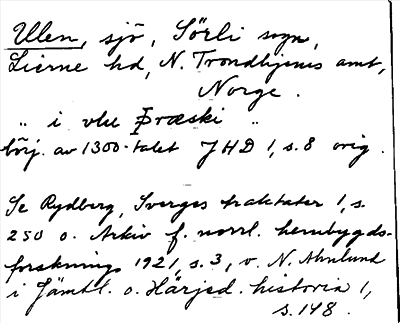 Ulen, sjö, Sörli sogn,
Lierne hd, N. Trondhjems amt,
Norge.
„ i vlu Þræski „
börj. av 1300-talet JHD 1, s. 8 orig.
Se Rydberg, Sverges traktater 1, s.
250 o. Arkiv f. norrl. hembygds-
forskning 1921, s. 3, v. N. Ahnlund
i Jämtl. o. Härjed. historia 1,
s. 148.